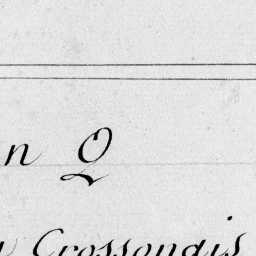 n Q
Crossonais